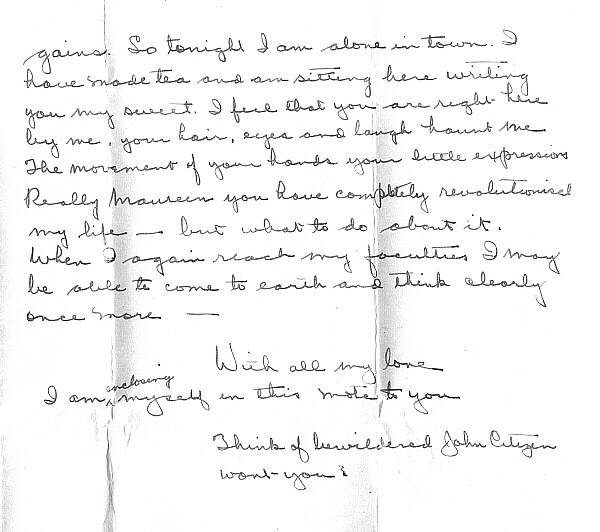 gains. So tonight I am alone in town. I
have made tea and am sitting here writing
you my sweet. I feel that you are right here
by me, your hair, eyes and laugh haunt me
The movement of your hands your little expressions
Really Maureen you have completely revolutionised
my life — but what to do about it.
When I again reach my faculties I may
be able to come to earth and think clearly
once more —
With all my love
I am enclosing myself in this note to you
Think of bewildered John Citizen
wont you?